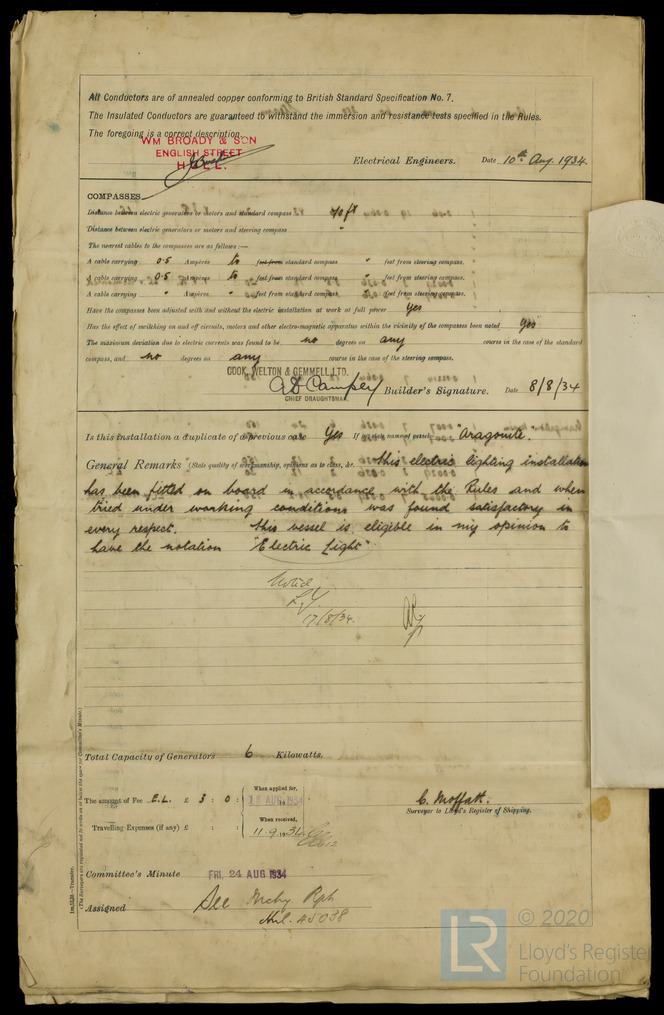 All Conductors are of annealed copper conforming to British Standard Specification No. 7.
The Insulated Conductors are guaranteed to withstand the immersion and resistance tests specified in the Rules.
The foregoing is a correct description.
WM BROADY & SON
ENGLISH STREET
HULL.
Electrical Engineers. Date 10th Aug. 1934.
COMPASSES.
Distance between electric generators or motors and standard compass 70 ft
Distance between electric generators or motors and steering compass "
The nearest cables to the compasses are as follows:—
A cable carrying 0.5 Ampères to feet from standard compass " feet from steering compass.
A cable carrying 0.5 Ampères to feet from standard compass " feet from steering compass.
A cable carrying " Ampères " feet from standard compass " feet from steering compass.
Have the compasses been adjusted with and without the electric installation at work at full power Yes
Has the effect of switching on and off circuits, motors and other electro-magnetic apparatus within the vicinity of the compasses been noted Yes
The maximum deviation due to electric currents was found to be no degrees on any course in the case of the standard
compass, and no degrees on any course in the case of the steering compass.
COOK, WELTON & GEMMELL LTD.
CHIEF DRAUGHTSMAN
Builder's Signature. Date 8/8/34
Is this installation a duplicate of a previous case Yes If so, state name of vessel "Aragonite."
General Remarks (State quality of workmanship, opinions as to class, &c. This electric lighting installation
has been fitted on board in accordance with the Rules and when
tried under working conditions was found satisfactory in
every respect. This vessel is eligible in my opinion to
have the notation "Electric Light"
Noted
17/8/34.
Total Capacity of Generators 6 Kilowatts.
The amount of Fee E.L. £ 3 : 0 :
When applied for,
AUG. 1934
Travelling Expenses (if any) £ : :
When received,
11.9.1934
C. Moffatt.
Surveyor to Lloyd's Register of Shipping.
Committee's Minute FRI. 24 AUG 1934
Assigned See Mchy Rph
Hul. 45038
1m.—Transfer.
(The Surveyors are requested not to write on or below the space for Committee's Minute.)
LR
© 2020
Lloyd's Register
Foundation